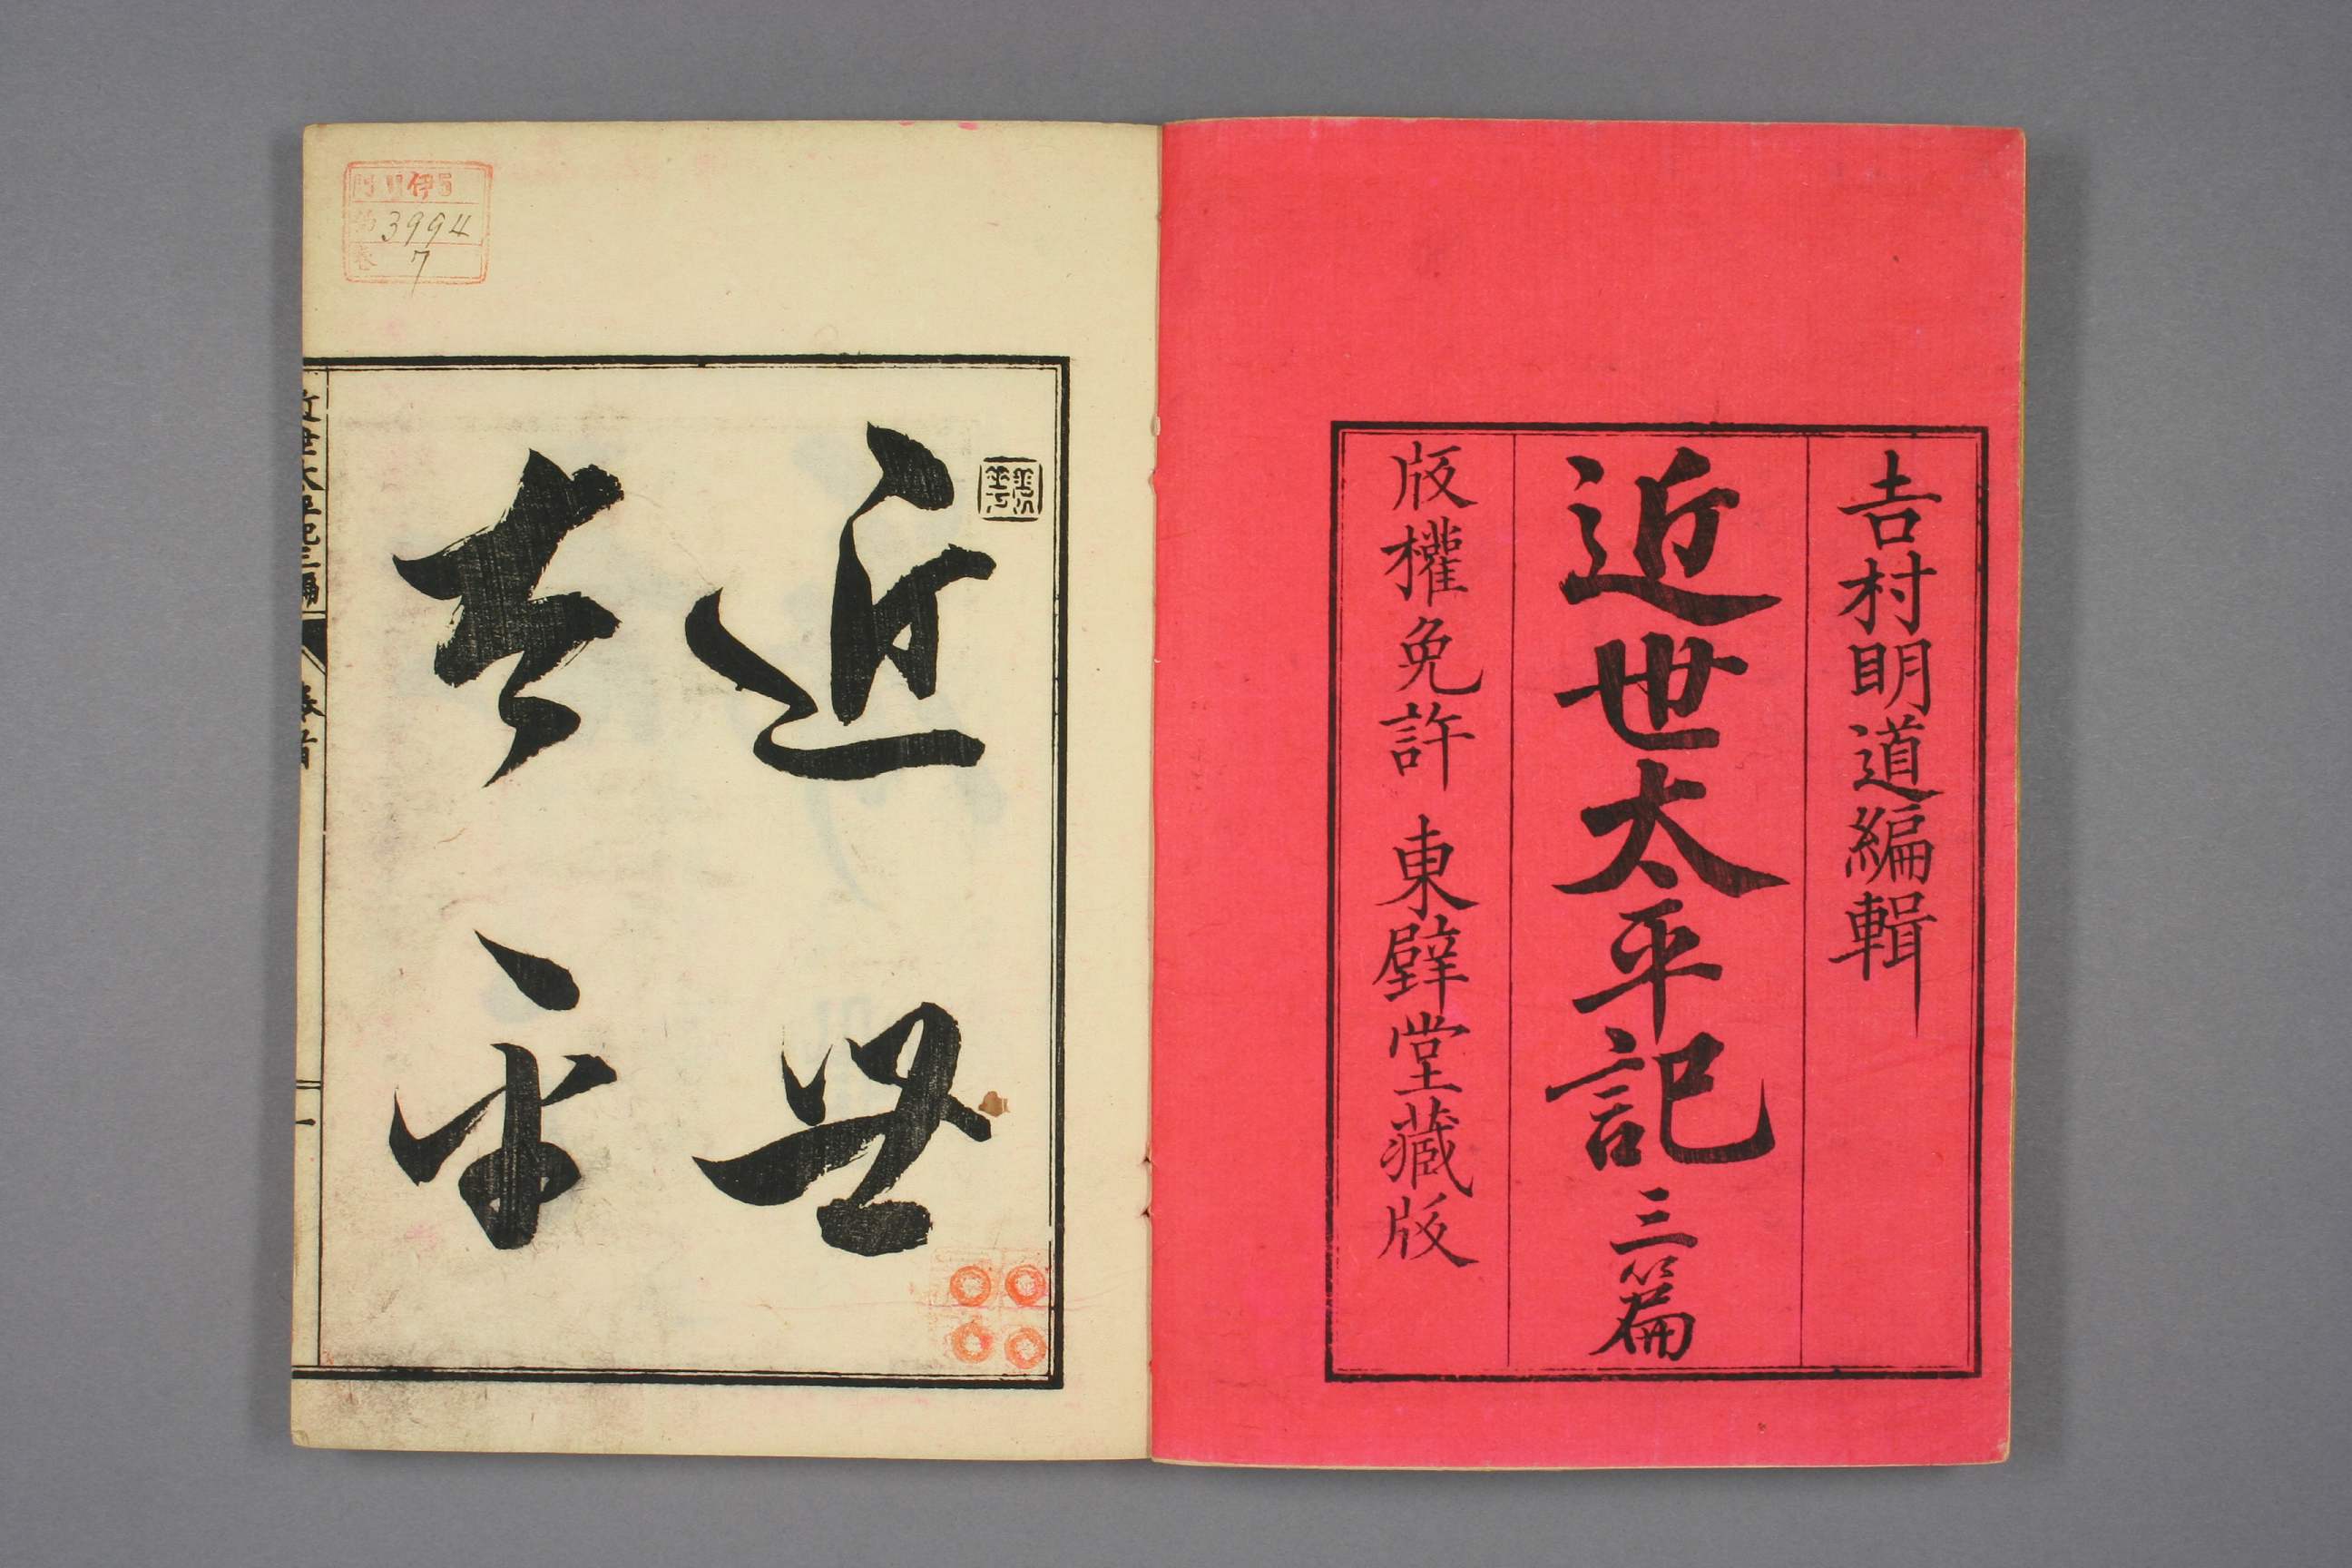 吉村明道編輯
近世太平記三篇
版權免許 東壁堂藏版
近世
太平
近世太平記三編
卷首
一
門 伊
3994
7